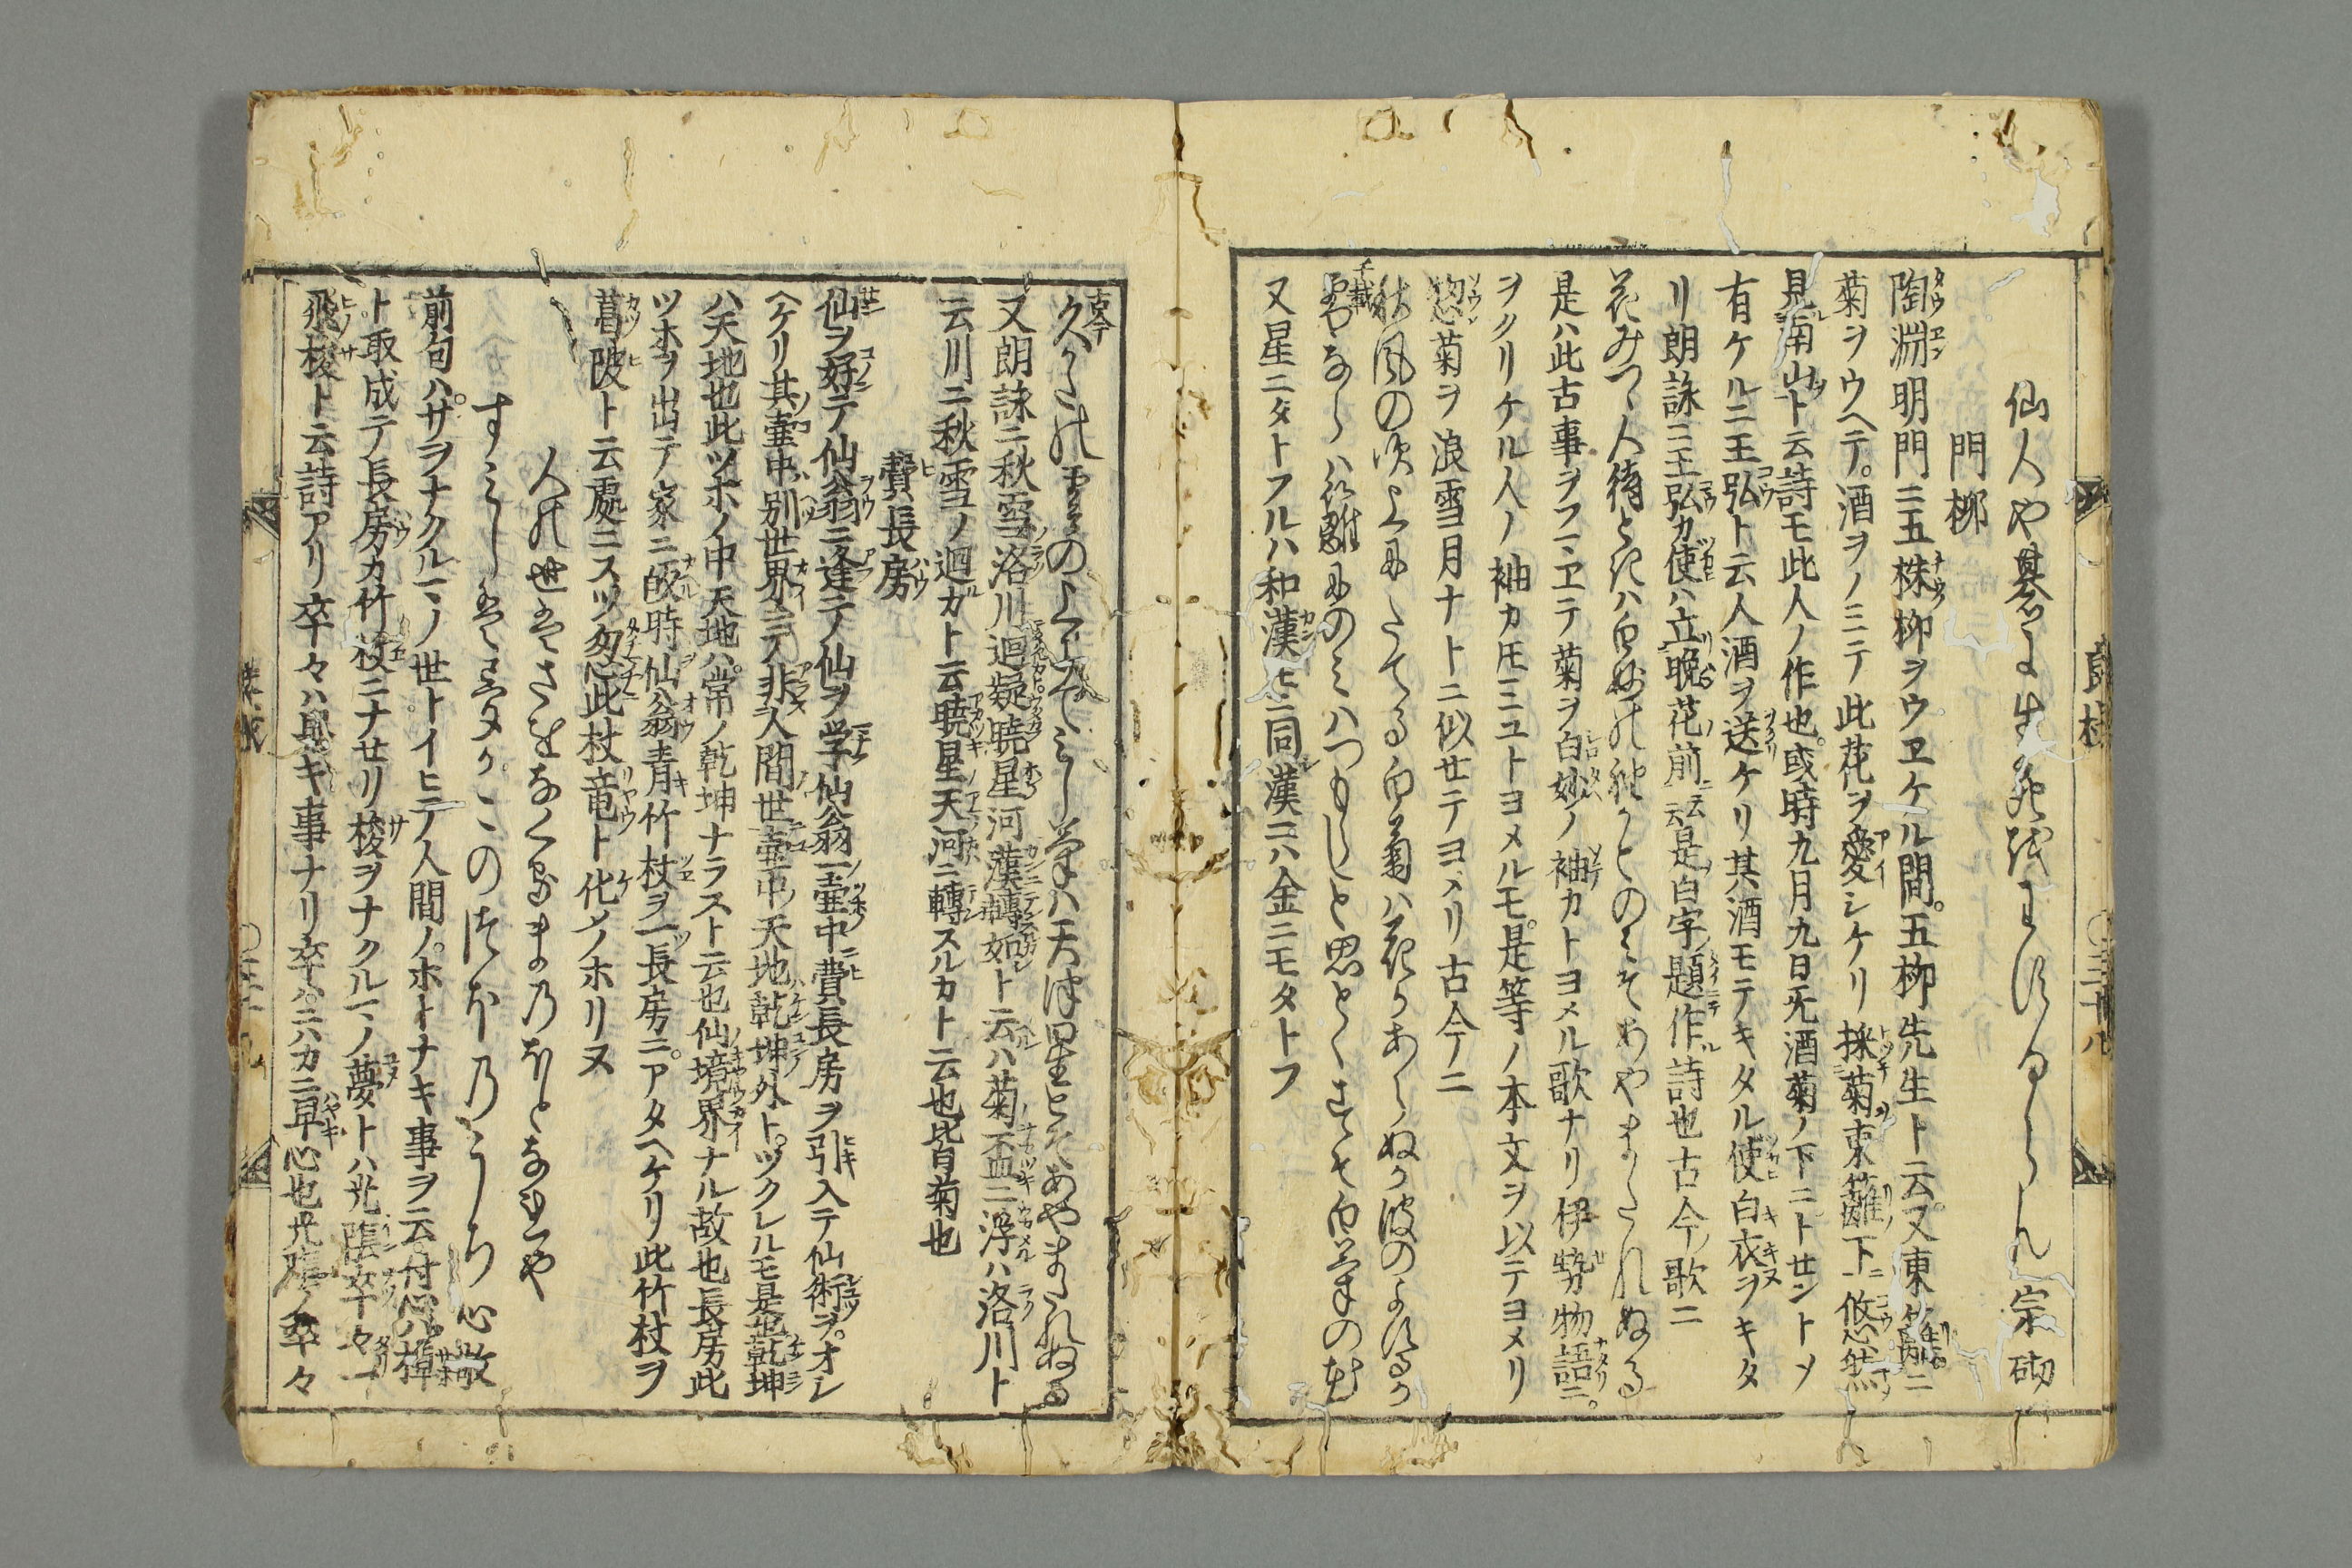 仙人や碁に生死我もすてるらん 宗砌
門柳
陶淵明門ニ五株柳ヲウヱケル間。五柳先生ト云。又東籬ニ
菊ヲウヘテ。酒ヲノミテ此花ヲ愛シケリ採菊東籬下悠然
見南山ト云詩モ此人ノ作也。或時九月九日无酒菊ノ下ニトセントメ
有ケルニ王弘ト云人酒ヲ送ケリ其酒モテキタル使白衣ヲキタ
リ朗詠ニ王弘カ使ハ立晩花前云云是白字題作詩也古今ノ歌ニ
花みつゝ人待ときハ白妙の袖かとのみそあやまたれぬる
是ハ此古事ヲフマヱテ菊ヲ白妙ノ袖カトヨメル歌ナリ伊勢物語ニ。
ヲクリケル人ノ袖カ圧ミユトヨメルモ。是等ノ本文ヲ以テヨメリ
惣菊ヲ浪雪月ナトニ似セテヨメリ古今ノニ
秋風の吹上にたてる白菊ハ花かあらぬか波のよするか
千載
雪ならハ籬にのミハつもらしと思とくにそ白菊の花
又星ニタトフルハ和漢共ニ同漢ニハ金ニモタトフ
古今
久かたの雲のうへにてみる菊ハ天津星とそあやまたれぬる
又朗詠ニ秋雪洛川廻疑暁星河漢轉如ト云ハ菊盃ニ浮ハ洛川ト
云川ニ秋雪ノ廻ガト云暁星天河ニ轉スルカト云也皆菊也
費長房
仙ヲ好テ仙翁ニ逢テノ仙ヲ学仙翁一壷中ニ費長房ヲ引入テ仙術ヲ。オシ
ヘケリ其壷中別世界ニテ非人間世壷中天地乾坤外ト。ツクレルモ是也乾坤
ハ天地也此ツホノ中天地ハ。常ノ乾坤ナラスト云也仙境界ナル故也長房此
ツホヲ出テ家ニ皈時仙翁青竹杖ヲ一長房ニ。アタヘケリ此竹杖ヲ
葛陂ト云處ニスツ忽此杖竜ト化メノホリヌ
人の世はさをなくるまのほとなれや
すミし はるかこのつほのうち 心敬
前句ハ。サヲナクルマノ世トイヒテ人間ノ。ホトナキ事ヲ云付心ハ樟
ト取成テ長房カ竹杖ニナセリ梭ヲナクルマノ夢トハ光陰卒々
飛梭ト云詩アリ卒々ハ早キ事ナリ卒ハニハカニ早心也光陰ノ卒々